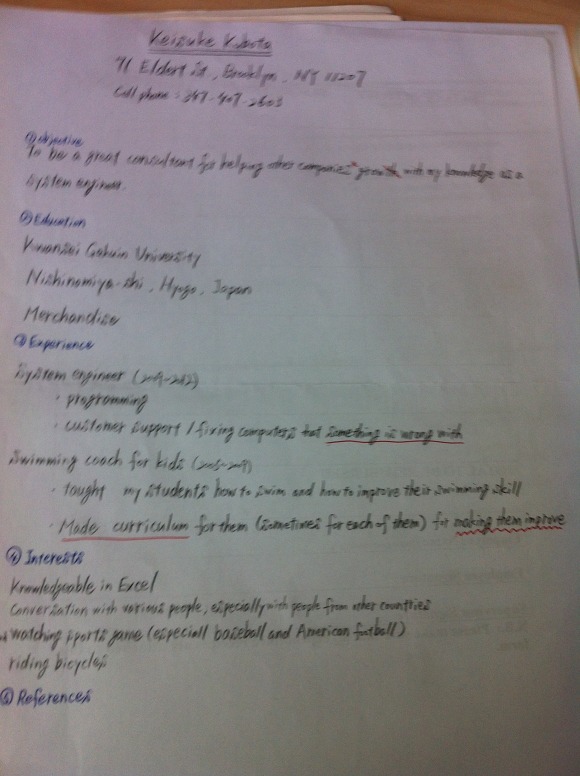 Keisuke Kubota
71 Eldert st, Brooklyn, NY 11207
Cell phone : 347-407-2603
① Objective
To be a great consultant for helping other companies' growth with my knowledge as a
system engineer.
② Education
Kwansei Gakuin University
Nishinomiya-shi, Hyogo, Japan
Merchandise
③ Experience
System engineer (2009-2012)
・programming
・customer support / fixing computers that something is wrong with
Swimming coach for kids (2005-2009)
・tought my students how to swim and how to improve their swimming skill
・Made curriculum for them (sometimes for each of them) for making them improve
④ Interests
Knowledgeable in Excel
Conversation with various people, especially with people from other countries
watching sports game (especiall baseball and American football)
riding bicycles
⑤ References